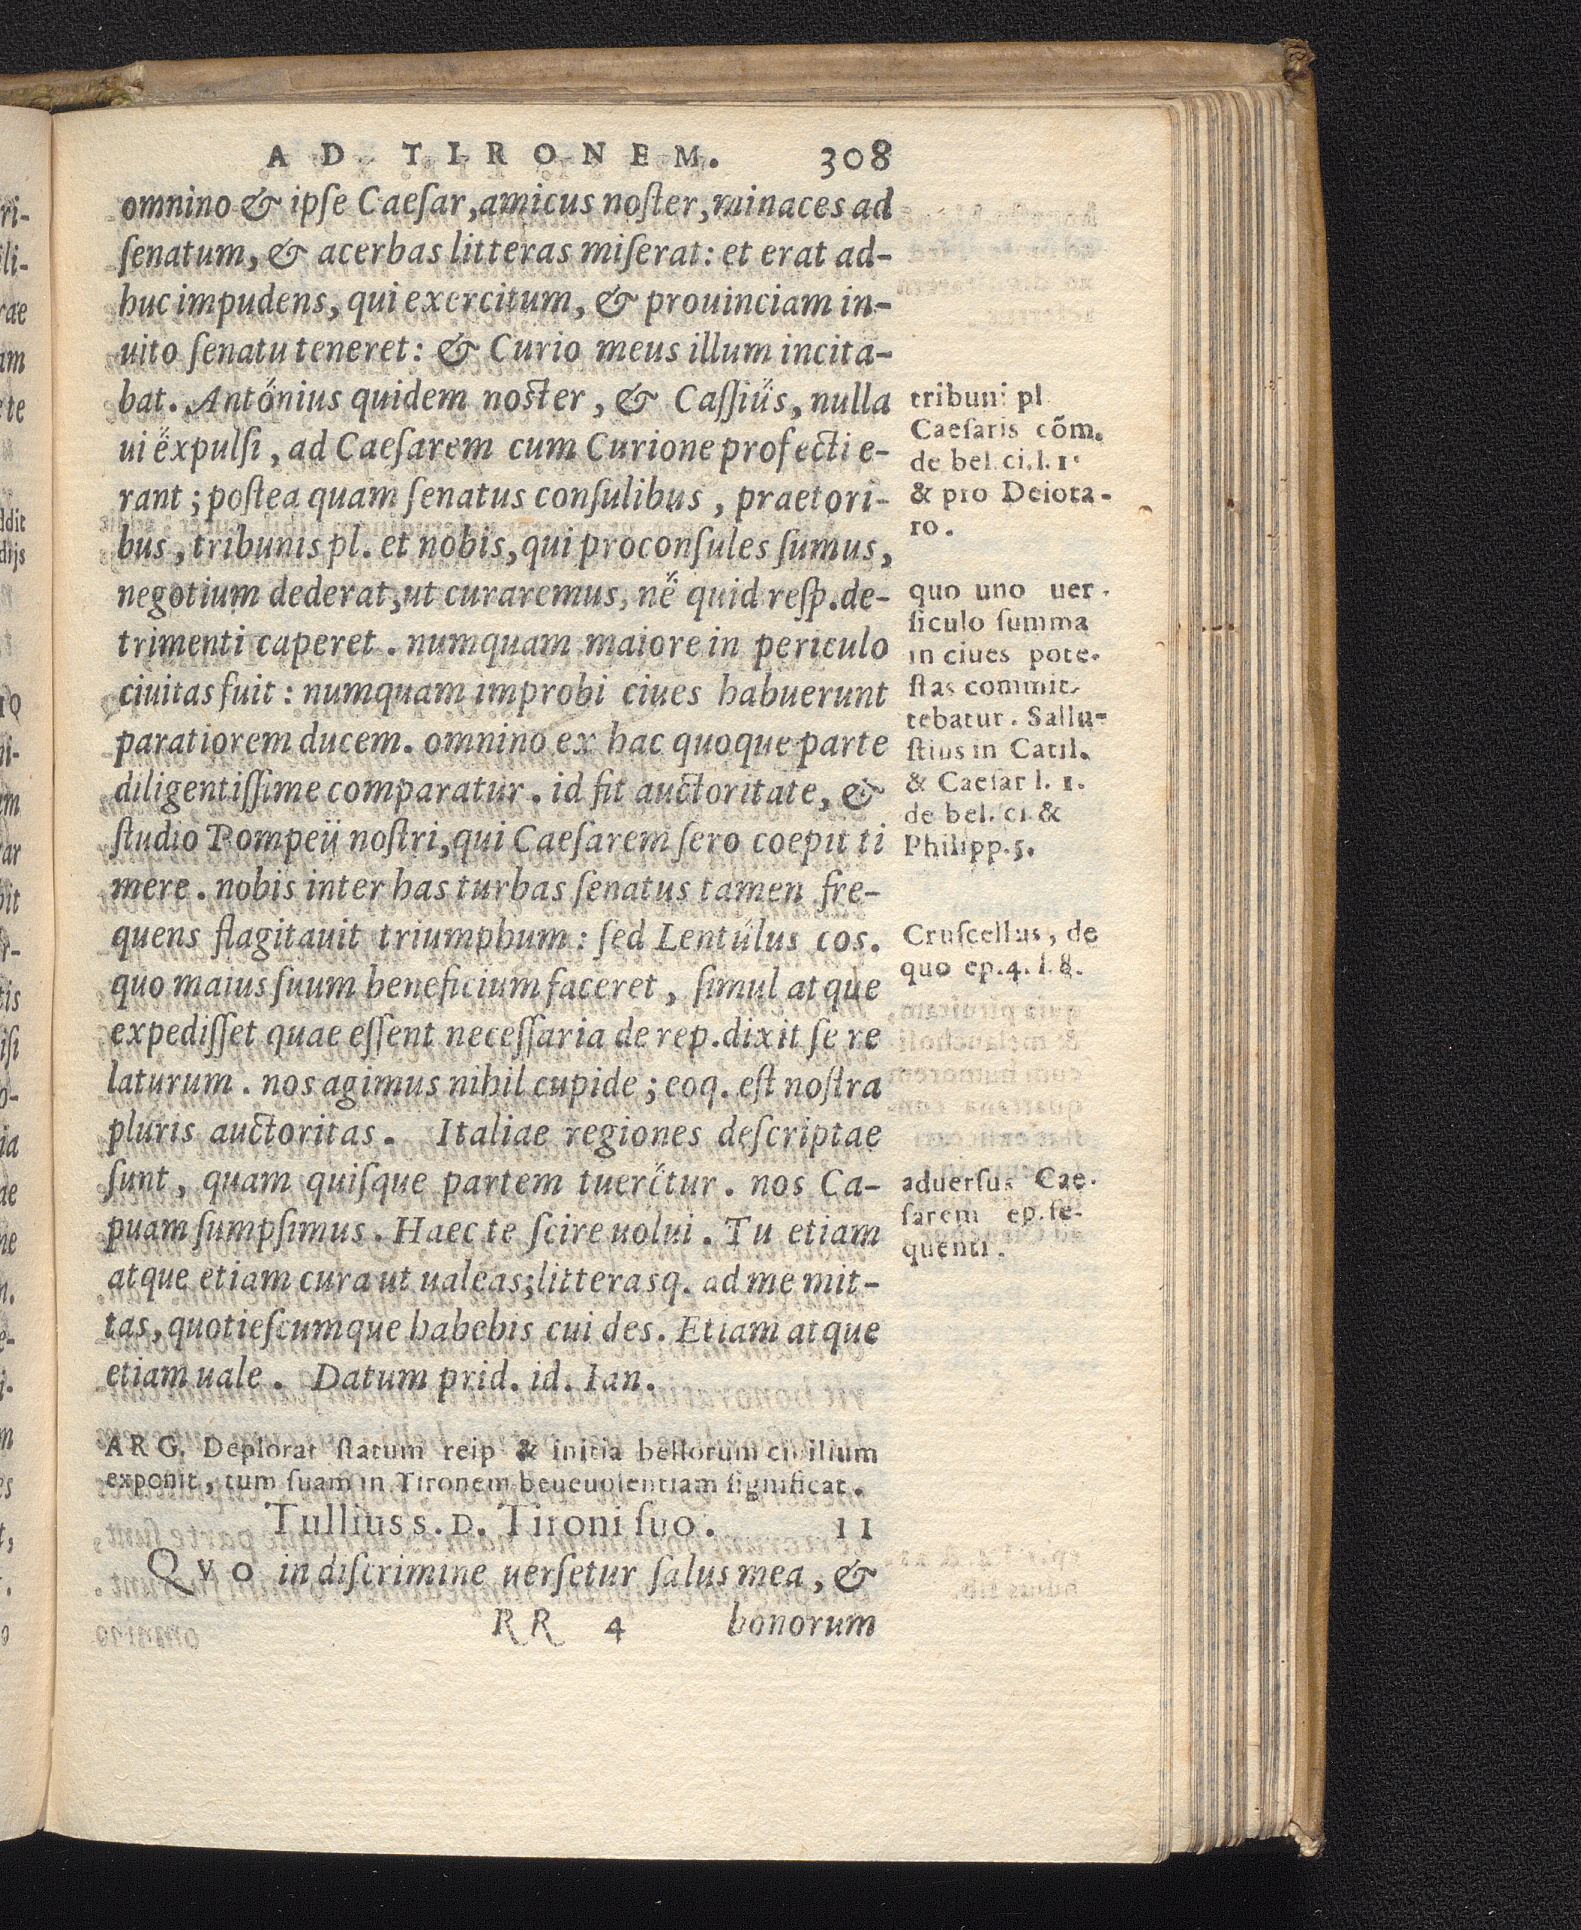 AD TIRONEM. 308
omnino & ipſe Caeſar, amicus noſter, minaces ad
ſenatum, & acerbas litteras miſerat: et erat ad-
huc impudens, qui exercitum, & prouinciam in-
uito ſenatu teneret: & Curio meus illum incita-
bat. Antonius quidem noſter, & Caſſius, nulla
ui expulſi, ad Caeſarem cum Curione profecti e-
rant; poſtea quam ſenatus conſulibus, praetori-
bus, tribunis pl. et nobis, qui proconſules ſumus,
negotium dederat, ut curaremus, ne quid reſp. de-
trimenti caperet. numquam maiore in periculo
ciuitas fuit: numquam improbi ciues habuerunt
paratiorem ducem. omnino ex hac quoque parte
diligentiſſime comparatur. id fit auctoritate, &
ſtudio Pompeij noſtri, qui Caeſarem ſero coepit ti
mere. nobis inter has turbas ſenatus tamen fre-
quens flagitauit triumphum: ſed Lentulus cos.
quo maius ſuum beneficium faceret, ſimul atque
expediſſet quae eſſent neceſſaria de rep. dixit ſe re
laturum. nos agimus nihil cupide; eoq. eſt noſtra
pluris auctoritas. Italiae regiones deſcriptae
ſunt, quam quiſque partem tueretur. nos Ca-
puam ſumpſimus. Haec te ſcire uolui. Tu etiam
atque etiam cura ut ualeas; litterasq. ad me mit-
tas, quotieſcumque habebis cui des. Etiam atque
etiam uale. Datum prid. id. Ian.
tribuni pl
Caeſaris cõm.
de bel. ci. l. 1.
& pro Deiota-
ro.
quo uno uer-
ſiculo ſumma
in ciues pote-
ſtas commit-
tebatur. Sallu-
ſtius in Catil.
& Caeſar l. 1.
de bel. ci. &
Philipp. 5.
Cruſcellus, de
quo ep. 4. l. 8.
aduerſus Cae-
ſarem ep. ſe-
quenti.
ARG. Deplorat ſtatum reip & initia bellorum ciuilium
exponit, tum ſuam in Tironem beueuolentiam ſignificat.
Tullius s. D. Tironi ſuo. 11
QVO in diſcrimine uerſetur ſalus mea, &
RR 4 bonorum